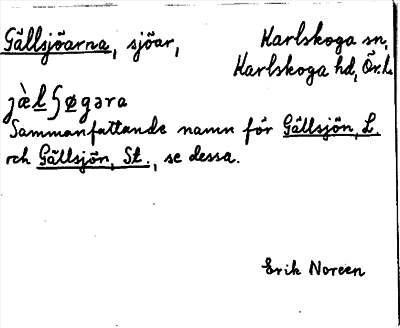 Gällsjöarna, sjöar, Karlskoga sn,
Karlskoga hd, Ör.l.
jä̀lʃøgəra
Sammanfattande namn för Gällsjön, L.
och Gällsjön, St., se dessa.
Erik Noreen